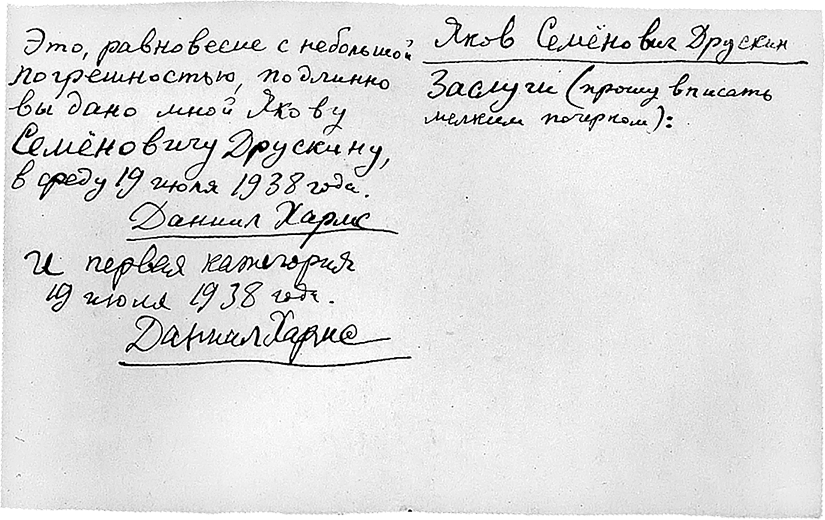 Это, равновесие с небольшой
погрешностью, подлинно
выдано мной Якову
Семёновичу Друскину,
в среду 19 июля 1938 года.
Даниил Хармс
И первая категория
19 июля 1938 года.
Даниил Хармс
Яков Семёнович Друскин
Заслуги (прошу вписать
мелким почерком):